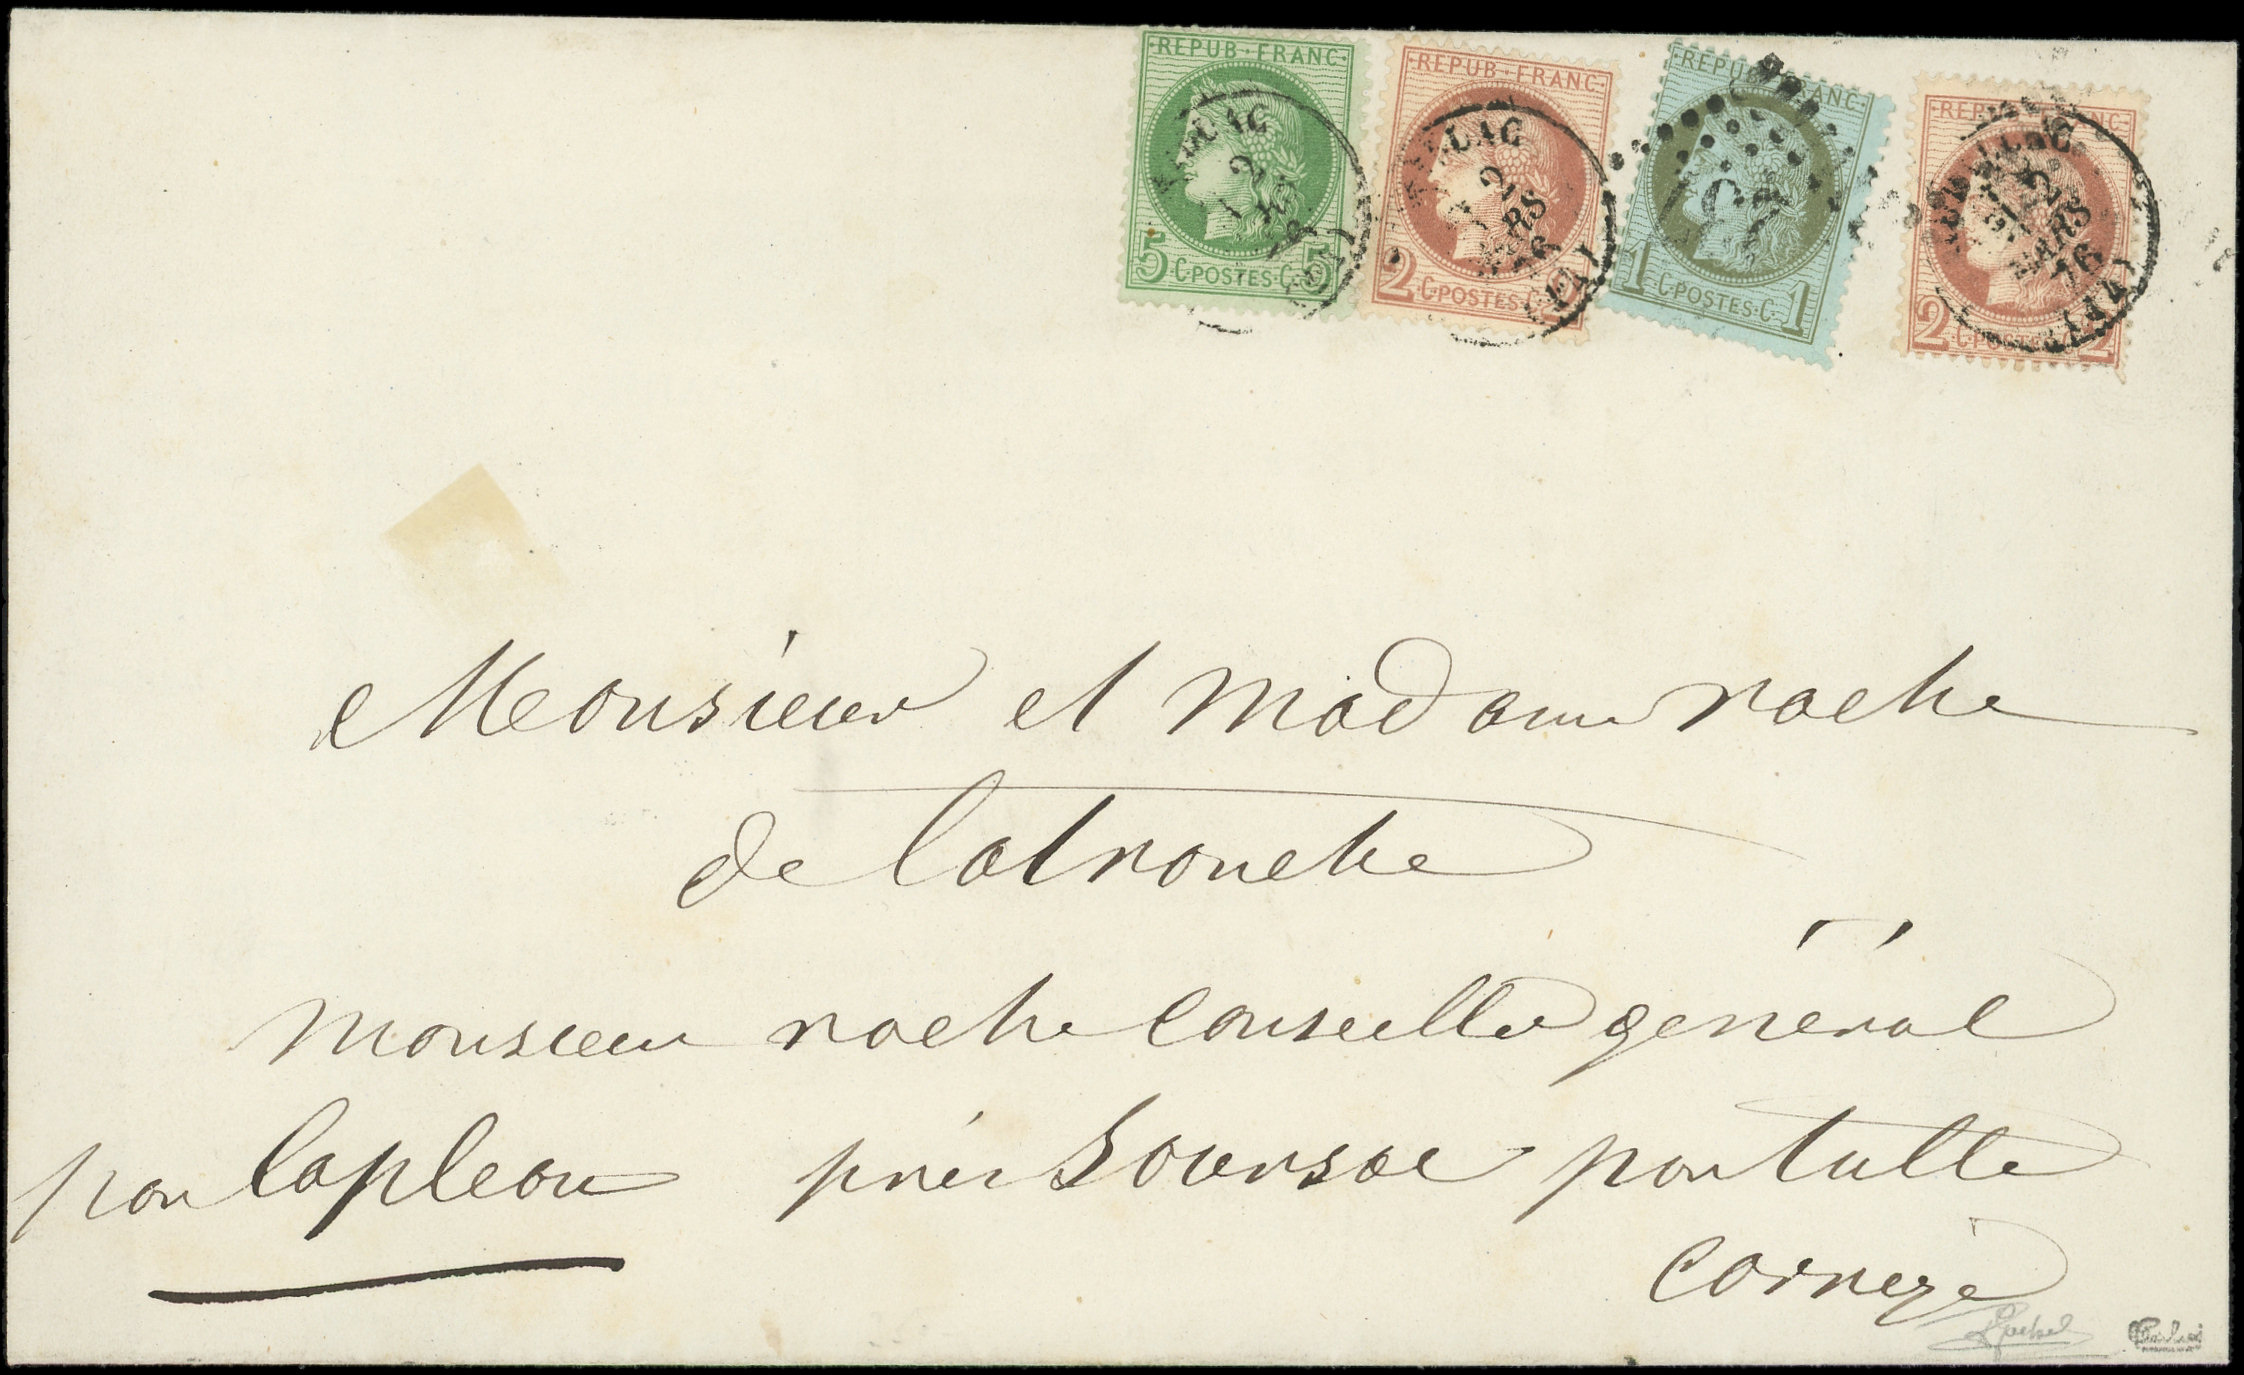 REPUB·FRANC
5·C·POSTES·C·5
REPUB·FRANC
2·C·POSTES·C·2
REPUB·FRANC
1·C·POSTES·C·1
REPUB·FRANC
2·C·POSTES·C·2
2
2
RS
76
12
MARS
76
Monsieur et Madame roche
de latrouche
monsieur roche conseiller général
par lapleau près Soursac par tulle
corrèze